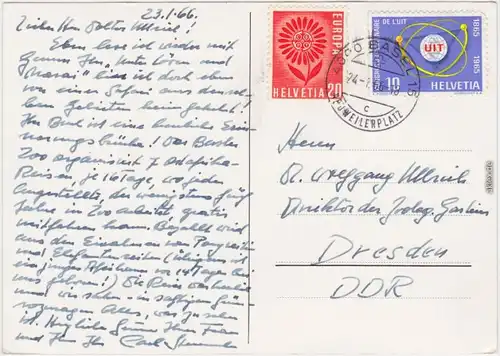 23.1.66.
Lieber Herr Doktor Ullrich!
Eben lese ich wieder mit
Genuss Ihr "Unter Löwen und
Marai" bin ich doch eben
von einer Safari aus denselben
Gebieten heimgekehrt!
Ihr Buch ist eine herrliche
Der Basler
Zoo organisiert 7 Ostafrika-
Reisen, je 16 Tage, wo jeder
Angestellte, der wenigstens fünf
Jahre im Zoo arbeitet, gratis
mitfahren kann. Bezahlt wird
aus den Einnahmen von Ponyreiten
und Elefantenreiten
ein junger Afrikaner vor 14 Tagen bei
uns geboren!) Die Reise war herrlich
und wir sahen
Alles, was zu sehen
ist. Herzliche Grüsse Ihrer Frau
und Ihnen Ihr Carl
EUROPA
HELVETIA 20
CENTENAIRE DE L'UIT
1865 1965
UIT
10 HELVETIA
4000 BASEL 15
c
Herrn
Dr. Wolfgang Ullrich
Direktor des Zoolog. Gartens
Dresden
DDR